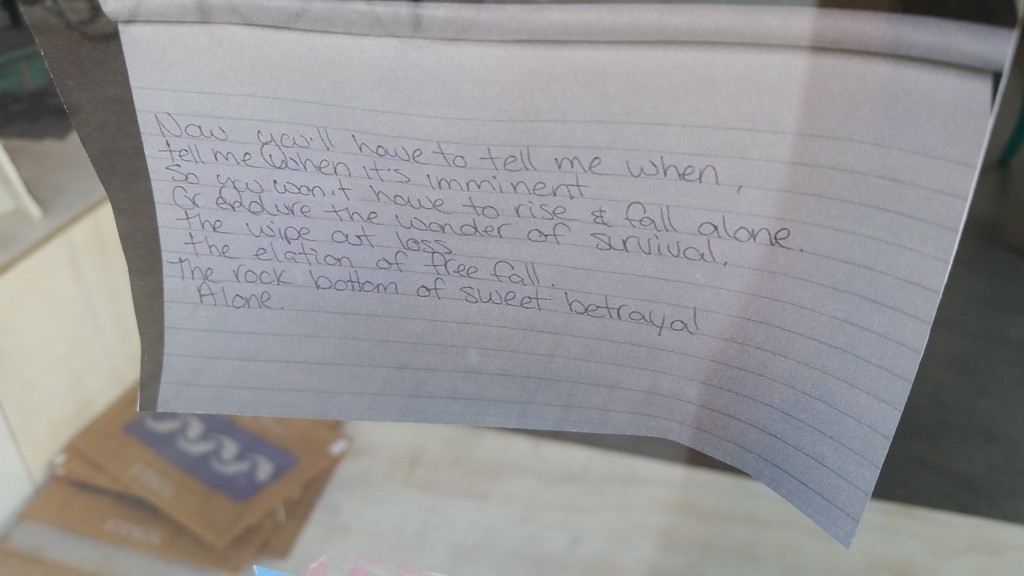 Now you'll have to tell me when,
tell me when it's imminent
So you won't have to rise & fall alone.
Or endure the wonder of survival,
the wipe out loss
the elation of free fall.
The rock bottom of sweet betrayal
Alone.